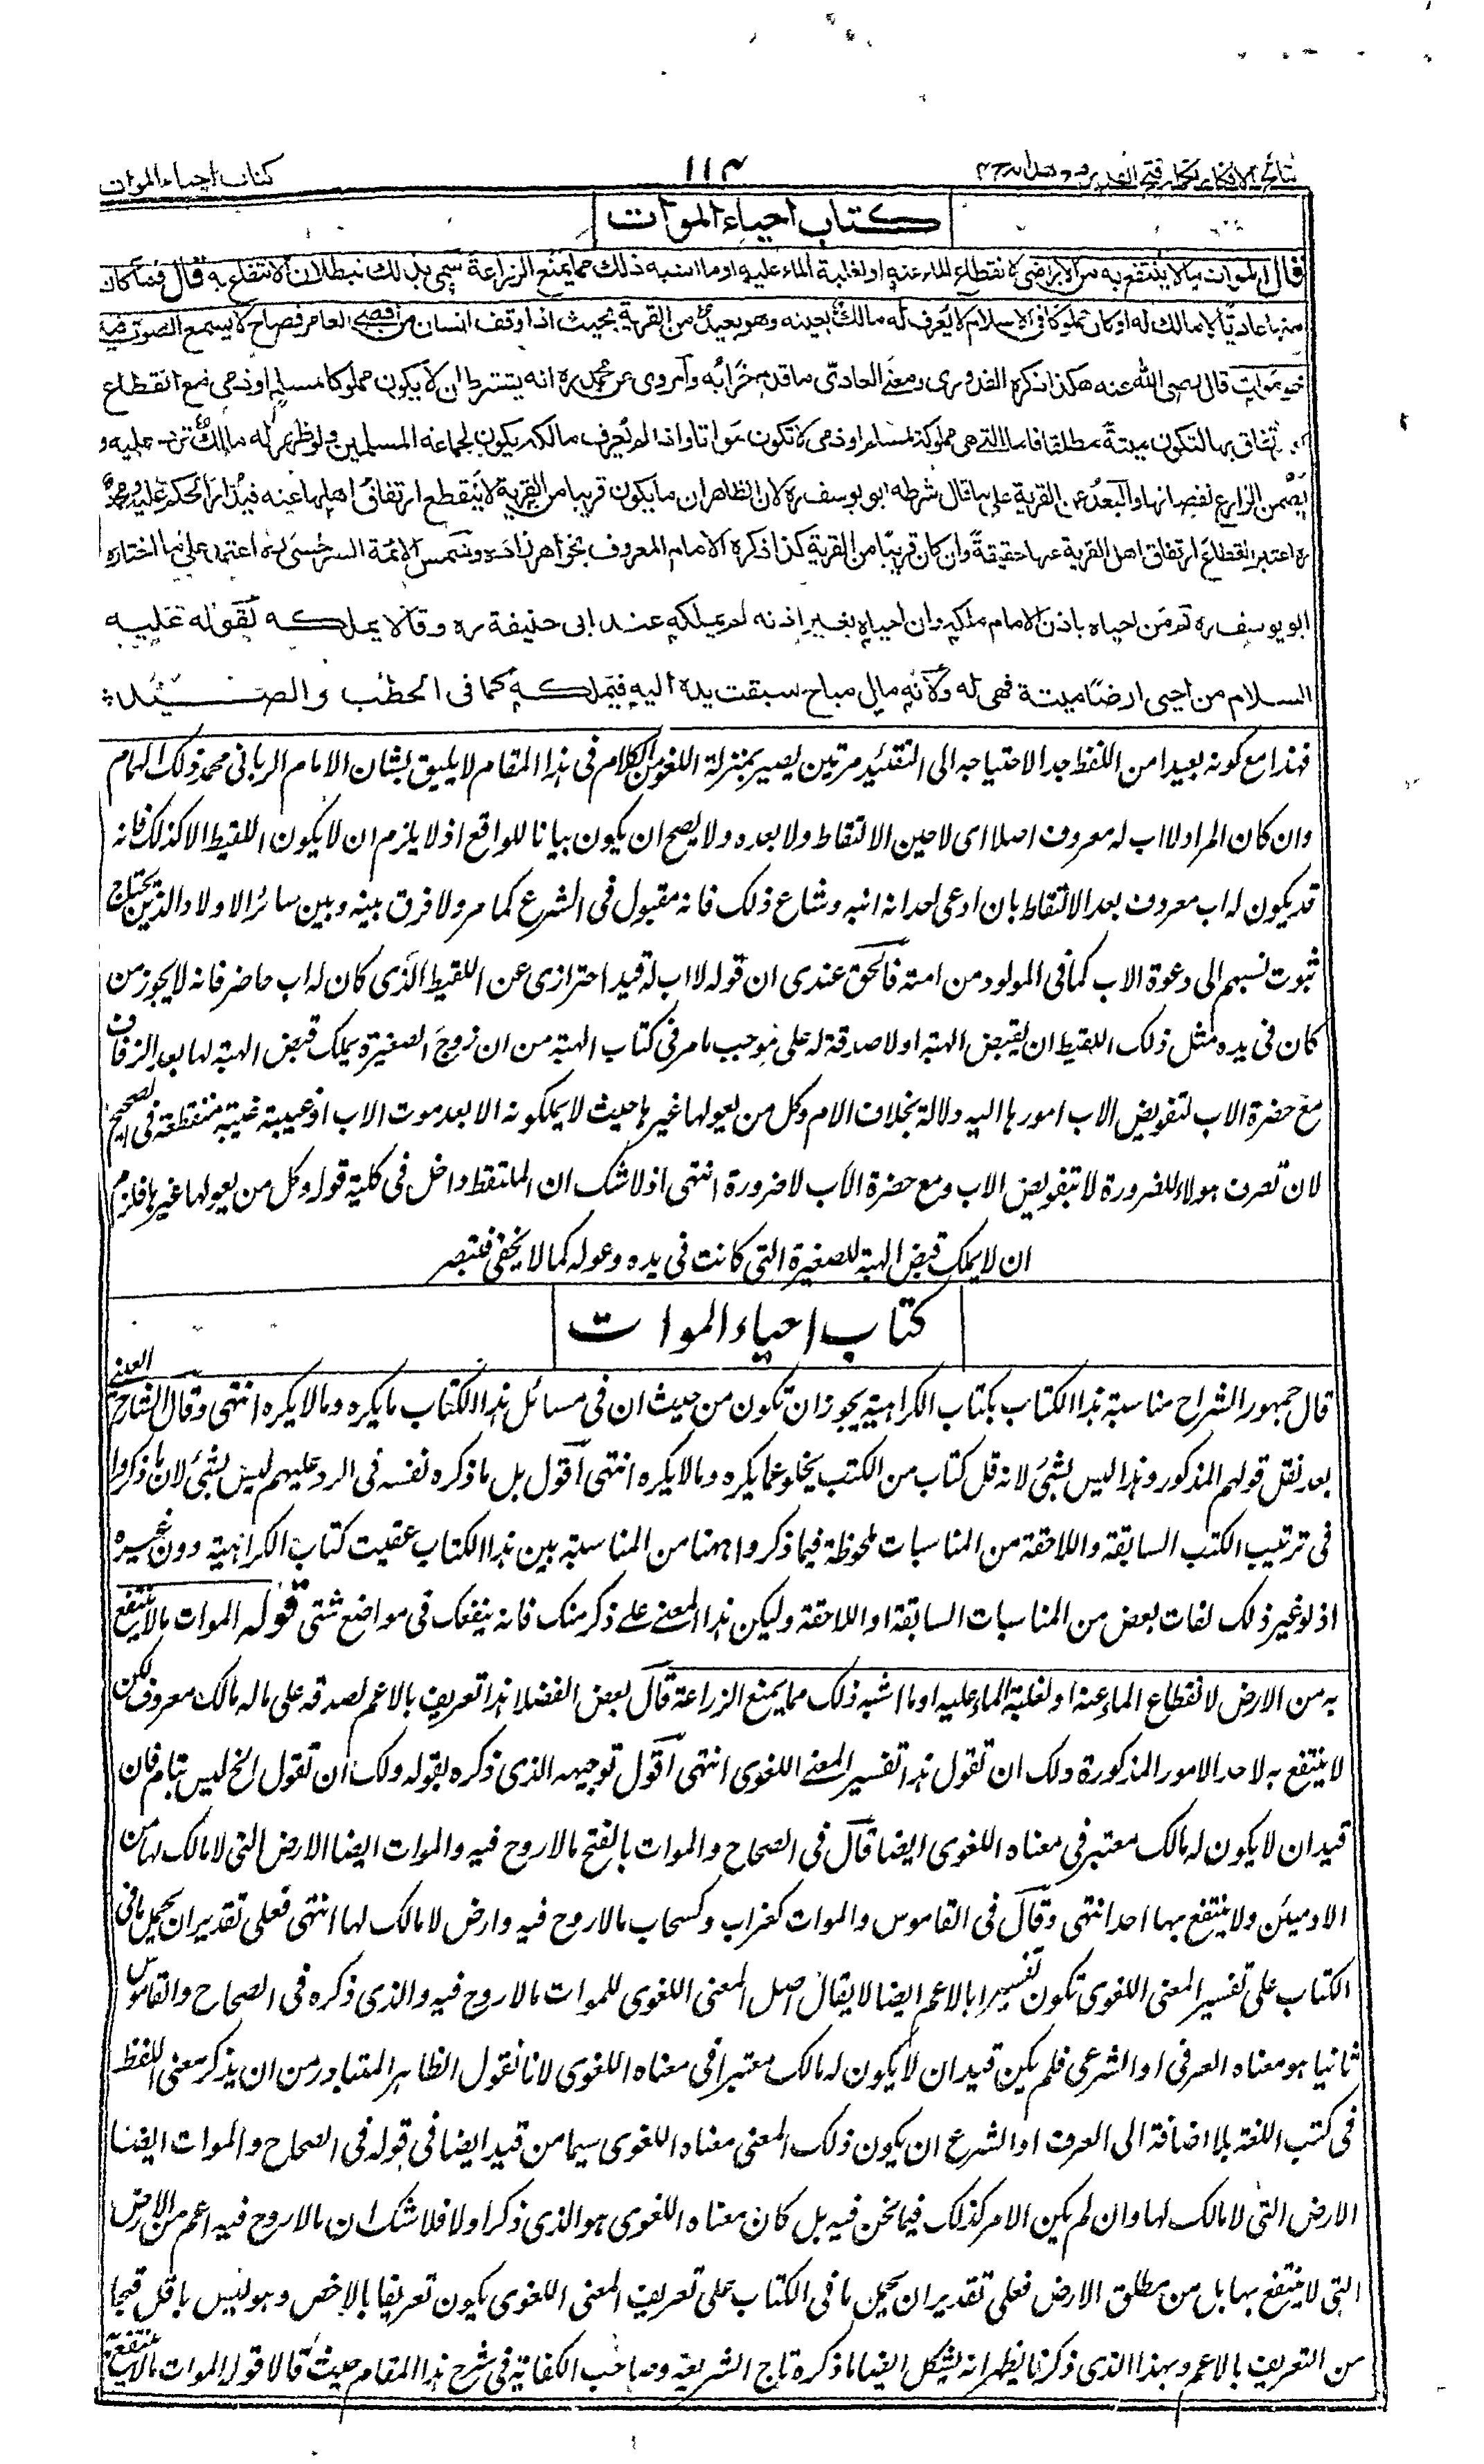 نتائج الافكار تكملة فتح القدير مع هداية ج ٤
١١٣
كتاب احياء الموات
كتاب احياء الموات
قال الموات ما لا ينتفع به من الاراضى لانقطاع الماء عنه او لغلبة الماء عليه او ما اشبه ذلك مما يمنع الزراعة سمى بذلك لبطلان الانتفاع به قال فما كان
منها عاديًا لا مالك له او كان مملوكا فى الاسلام لا يُعرف له مالك بعينه وهو بعيد من القرية بحيث اذا وقف انسان من اقصى العامر فصاح لا يسمع الصوت فيه
فهو موات قال رضى الله عنه هكذا ذكره القدورى ومعنى العادىّ ما قدم خرابُه والمروى عن محمد ره انه يشترط ان لا يكون مملوكا لمسلم او ذمى مع انقطاع
الارتفاق بها لتكون ميتةً مطلقا فاما التى هى مملوكة لمسلم او ذمى لا تكون مَواتا واذا لم يُعرف مالكه يكون لجماعة المسلمين ولو ظهر له مالك ترد عليه و
يَضْمن الزارع نقصانها والبعدُ عن القرية على ما قال شرطه ابو يوسف ره لان الظاهر ان ما يكون قريبا من القرية لا ينقطع ارتفاقُ اهلها عنه فيُدار الحكم عليه ومحمدٌ
ره اعتبر انقطاعَ ارتفاق اهل القرية عنها حقيقةً وان كان قريبًا من القرية كذا ذكره الامام المعروف بخواهر زاده وشمس الائمة السرخسى ره اعتمد على ما اختاره
ابو يوسف ره ثم من احياه باذن الامام ملكه وان احياه بغير اذنه لم يملكه عند ابى حنيفة ره وقالا يملكه لقوله عليه
السلام من احيى ارضًا ميتة فهى له ولانه مال مباح سبقت يده اليه فيملكه كما فى الحطب والصيد
فهذا مع كونه بعيدا من اللفظ جدا لاحتياجه الى التقئيد مرتين يصير بمنزلة اللغو من الكلام فى هذا المقام لا يليق بشان الامام الربانى محمد ذلك الهمام
وان كان المراد لا اب له معروف اصلا اى لا حين الالتقاط ولا بعده ولا يصح ان يكون بيانا للواقع اذ لا يلزم ان لا يكون اللقيط الا كذلك فانه
قد يكون له اب معروف بعد الالتقاط بان ادعى احد انه ابنه وشاع ذلك فانه مقبول فى الشرع كما مر ولا فرق بينه وبين سائر الاولاد الذين يحتاج
ثبوت نسبهم الى دعوة الاب كما فى المولود من امته فالحق عندى ان قوله لا اب له قيد احترازى عن اللقيط الذى كان له اب حاضر فانه لا يجوز من
كان فى يده مثل ذلك اللقيط ان يقبض الهبة او لا صدقة له على موجب ما مر فى كتاب الهبة من ان زوج الصغيرة يملك قبض الهبة لها بعد الزفاف
مع حضرة الاب لتفويض الاب امورها اليه دلالة بخلاف الام وكل من يعولها غيرها حيث لا يملكونه الا بعد موت الاب او غيبته غيبة منقطعة فى الصحيح
لان تصرف هولاء للضرورة لا بتفويض الاب ومع حضرة الاب لا ضرورة انتهى اذ لا شك ان الملتقط داخل فى كلية قوله وكل من يعولها غيرها فلزم
ان لا يملك قبض الهبة للصغيرة التى كانت فى يده وعوله كما لا يخفى فتبصر
كتاب احياء الموات
قال جمهور الشراح مناسبة هذا الكتاب بكتاب الكراهية يجوز ان تكون من حيث ان فى مسائل هذا الكتاب ما يكره وما لا يكره انتهى وقال الشارح العينى
بعد نقل قولهم المذكور وهذا ليس بشئ لانه قل كتاب من الكتب يخلو عما يكره وما لا يكره انتهى اقول بل ما ذكره نفسه فى الرد عليهم ليس بشئ لان ما ذكروا
فى ترتيب الكتب السابقة واللاحقة من المناسبات ملحوظة فيما ذكروا ههنا من المناسبة بين هذا الكتاب عقيب كتاب الكراهية دون غيره
اذ لو غير ذلك لفات بعض من المناسبات السابقة او اللاحقة وليكن هذا المعنى على ذكر منك فانه ينفعك فى مواضع شتى قوله الموات ما لا ينتفع
به من الارض لانقطاع الماء عنه او لغلبة الماء عليه او ما اشبه ذلك مما يمنع الزراعة قال بعض الفضلا هذا تعريف بالاعم لصدقه على ما له مالك معروف لكن
لا ينتفع به لاحد الامور المذكورة ولك ان تقول هذا تفسير المعنى اللغوى انتهى اقول توجيهه الذى ذكره بقوله ولك ان تقول الخ ليس بتام فان
قيد ان لا يكون له مالك معتبر فى معناه اللغوى ايضا قال فى الصحاح والموات بالفتح ما لا روح فيه والموات ايضا الارض التى لا مالك لها من
الادميئن ولا ينتفع بها احد انتهى وقال فى القاموس والموات كغراب وكسحاب ما لا روح فيه وارض لا مالك لها انتهى فعلى تقدير ان يحمل ما فى
الكتاب على تفسير المعنى اللغوى تكون تفسيرا بالاعم ايضا لا يقال اصل المعنى اللغوى للموات ما لا روح فيه والذى ذكره فى الصحاح والقاموس
ثانيا هو معناه العرفى او الشرعى فلم يكن قيد ان لا يكون له مالك معتبرا فى معناه اللغوى لانا نقول الظاهر المتبادر من ان يذكر معنى اللفظ
فى كتب اللغة بلا اضافة الى العرف او الشرع ان يكون ذلك المعنى معناه اللغوى سيما من قيد ايضا فى قوله فى الصحاح والموات ايضا
الارض التى لا مالك لها وان لم يكن الامر كذلك فيما نحن فيه بل كان معناه اللغوى هو الذى ذكر اولا فلا شك ان ما لا روح فيه اعم من الارض
التى لا ينتفع بها بل من مطلق الارض فعلى تقدير ان يحمل ما فى الكتاب على تعريف المعنى اللغوى يكون تعريفا بالاخص وهو ليس باقل قبحا
من التعريف بالاعم وبهذا الذى ذكرنا يظهر انه يشكل ايضا ما ذكره تاج الشريعة وصاحب الكفاية فى شرح هذا المقام حيث قالا قوله الموات ما لا ينتفع به